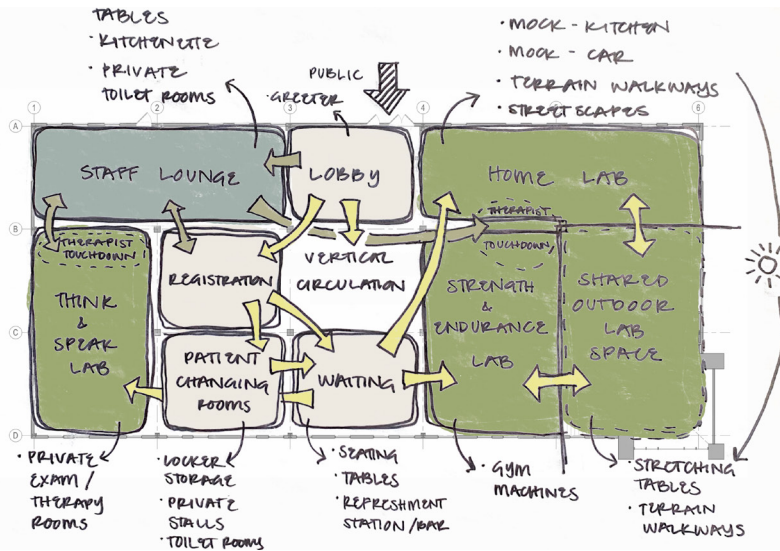 TABLES
· KITCHENETTE
· PRIVATE
TOILET ROOMS
PUBLIC
· GREETER
· MOCK - KITCHEN
· MOCK - CAR
· TERRAIN WALKWAYS
· STREETSCAPES
1
2
3
4
6
A
STAFF LOUNGE
LOBBY
HOME LAB
THERAPIST
TOUCHDOWN
B
THERAPIST
TOUCHDOWN
THINK
&
SPEAK
LAB
REGISTRATION
VERTICAL
CIRCULATION
STRENGTH
&
ENDURANCE
LAB
SHARED
OUTDOOR
LAB
SPACE
C
PATIENT
CHANGING
ROOMS
WAITING
D
· PRIVATE
EXAM /
THERAPY
ROOMS
· LOCKER
STORAGE
· PRIVATE
STALLS
· TOILET ROOMS
· SEATING
· TABLES
· REFRESHMENT
STATION / BAR
· GYM
MACHINES
· STRETCHING
TABLES
· TERRAIN
WALKWAYS